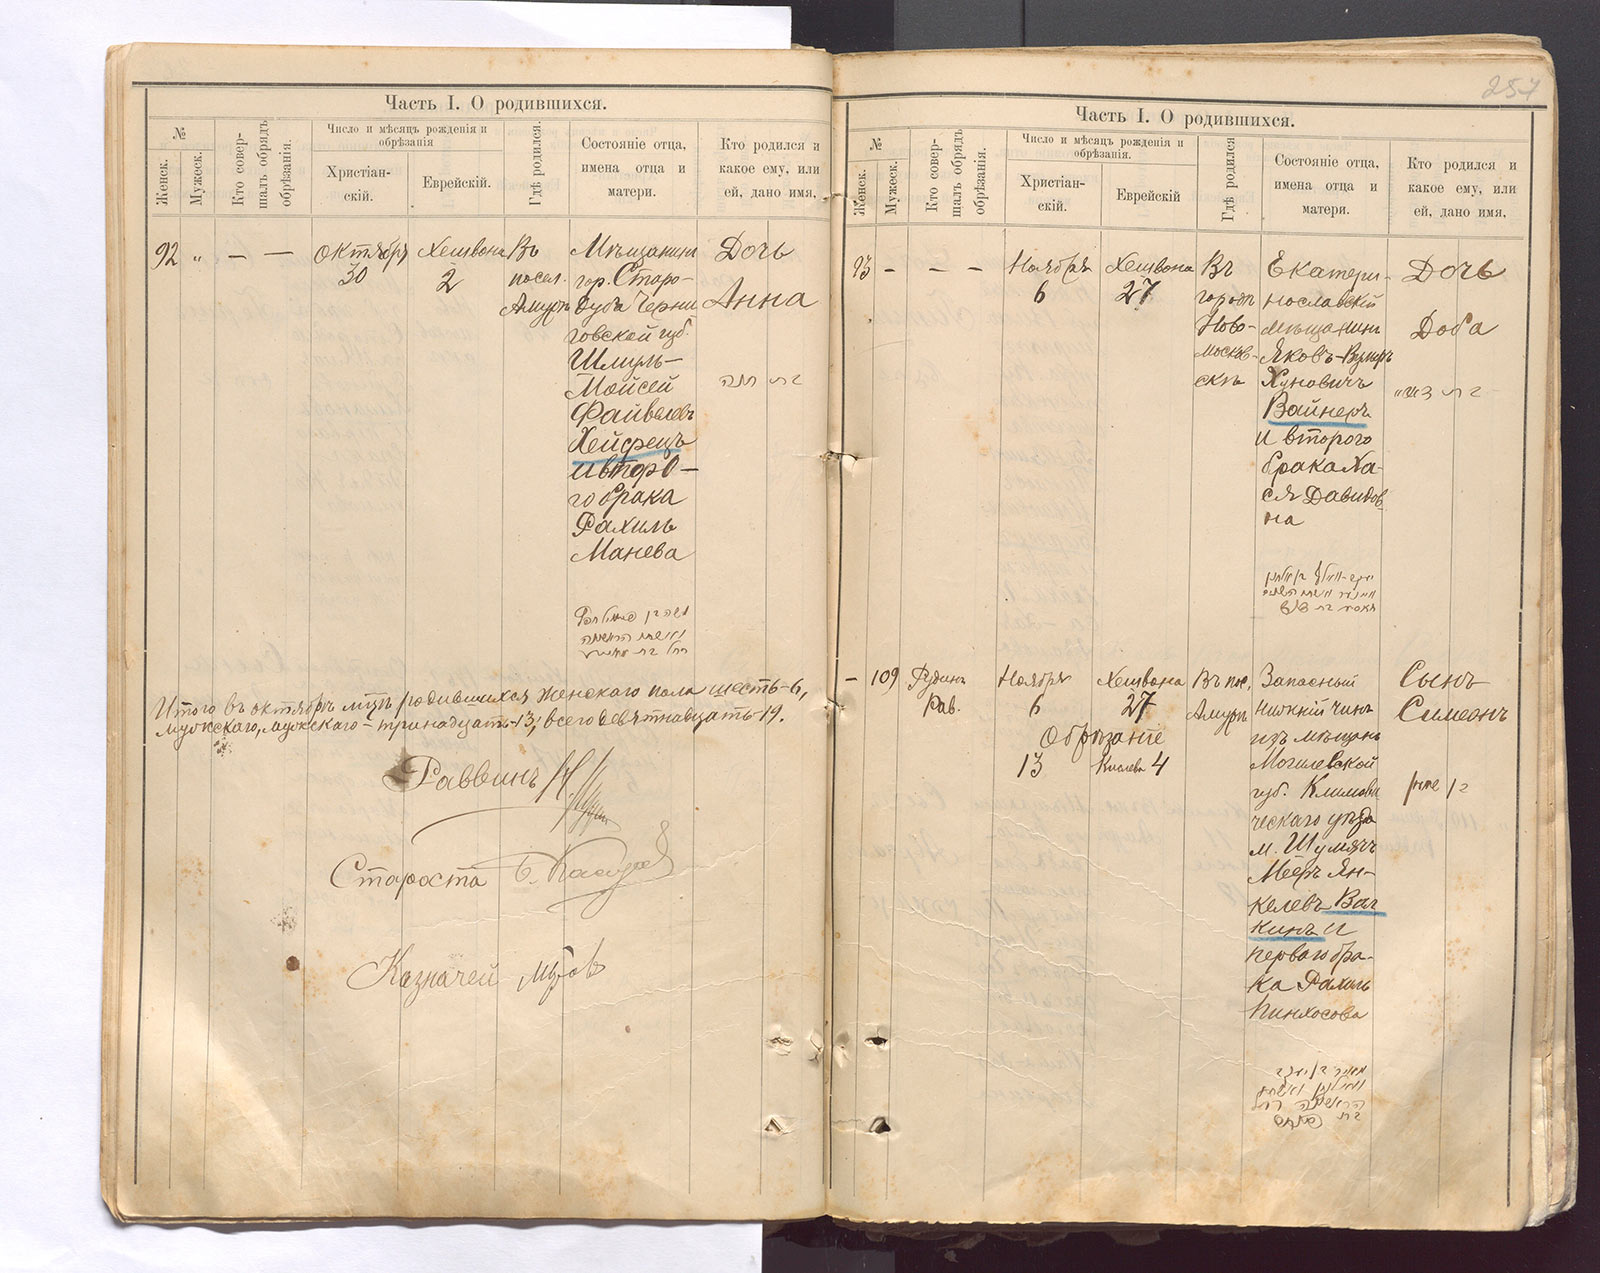 Часть I. О родившихся.
№
Женск.
Мужеск.
Кто совер-
шалъ обрядъ
обрѣзанія.
Число и мѣсяцъ рожденія и
обрѣзанія
Христіан-
скій.
Еврейскій.
Гдѣ родился.
Состояніе отца,
имена отца и
матери.
Кто родился и
какое ему, или
ей, дано имя.
92 „ — —
Октября
30
Хешвона
2
Въ
посел.
Амуръ
Мѣщанинъ
гор. Старо-
дуба Черни
говской губ.
Шмуль-
Мойсей
Файвелевъ
Хейфецъ
и второ-
го брака
Рахиль
Манева
Дочь
Анна
בת חנה
Итого въ октябрѣ мцѣ родившихся женскаго пола шесть-6,
мужскаго, мужскаго-тринадцать-13, всего девятнадцать-19.
Раввинъ
Староста
Казначей
257
Часть I. О родившихся.
№
Женск.
Мужеск.
Кто совер-
шалъ обрядъ
обрѣзанія.
Число и мѣсяцъ рожденія и
обрѣзанія.
Христіан-
скій.
Еврейскій
Гдѣ родился
Состояніе отца,
имена отца и
матери.
Кто родился и
какое ему, или
ей, дано имя,
93 — — —
Ноября
6
Хешвона
27
Въ
городѣ
Ново-
москов-
скѣ
Екатери-
нославскій
мѣщанинъ
Яковъ-Вульфъ
Хуновичъ
Вайнеръ
и второго
брака Ха-
ся Давидов
на
Дочь
Доба
— 109
Рудинъ
Рав.
Ноября
6
Хешвона
27
Обрѣзаніе
13
Кислева 4
Въ пос.
Амурѣ
Запасный
нижній чинъ
изъ мѣщанъ
Могилевской
губ. Климови
ческаго уѣзда
м. Шумячъ
Мееръ Ян-
келевъ Вач
кинъ и
перваго бра-
ка Рахиль
Пинхосова
Сынъ
Симеонъ